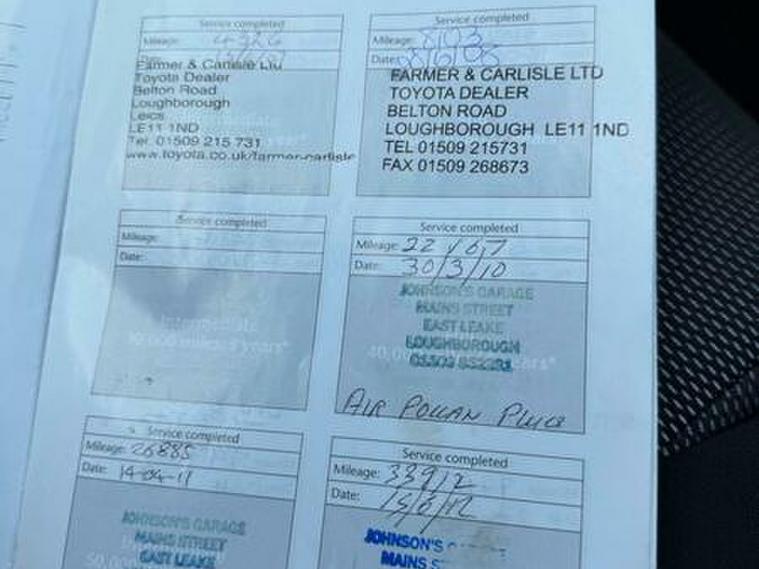 Service completed
Mileage: 4326
Date:
Farmer & Carlisle Ltd
Toyota Dealer
Belton Road
Loughborough
Leics
LE11 1ND
Tel: 01509 215 731
www.toyota.co.uk/farmer-carlisle
Service completed
Mileage: 8103
Date: 08/6/08
FARMER & CARLISLE LTD
TOYOTA DEALER
BELTON ROAD
LOUGHBOROUGH LE11 1ND
TEL 01509 215731
FAX 01509 268673
Service completed
Mileage:
Date:
Intermediate
30,000 miles/3 years*
Service completed
Mileage: 22467
Date: 30/3/10
JOHNSON'S GARAGE
MAINS STREET
EAST LEAKE
LOUGHBOROUGH
40,000
AIR POLLAN PLUGS
Service completed
Mileage: 26885
Date: 14-04-11
JOHNSON'S GARAGE
MAINS STREET
EAST LEAKE
50,000
Service completed
Mileage: 33912
Date: 15/6/12
JOHNSON'S
MAINS S